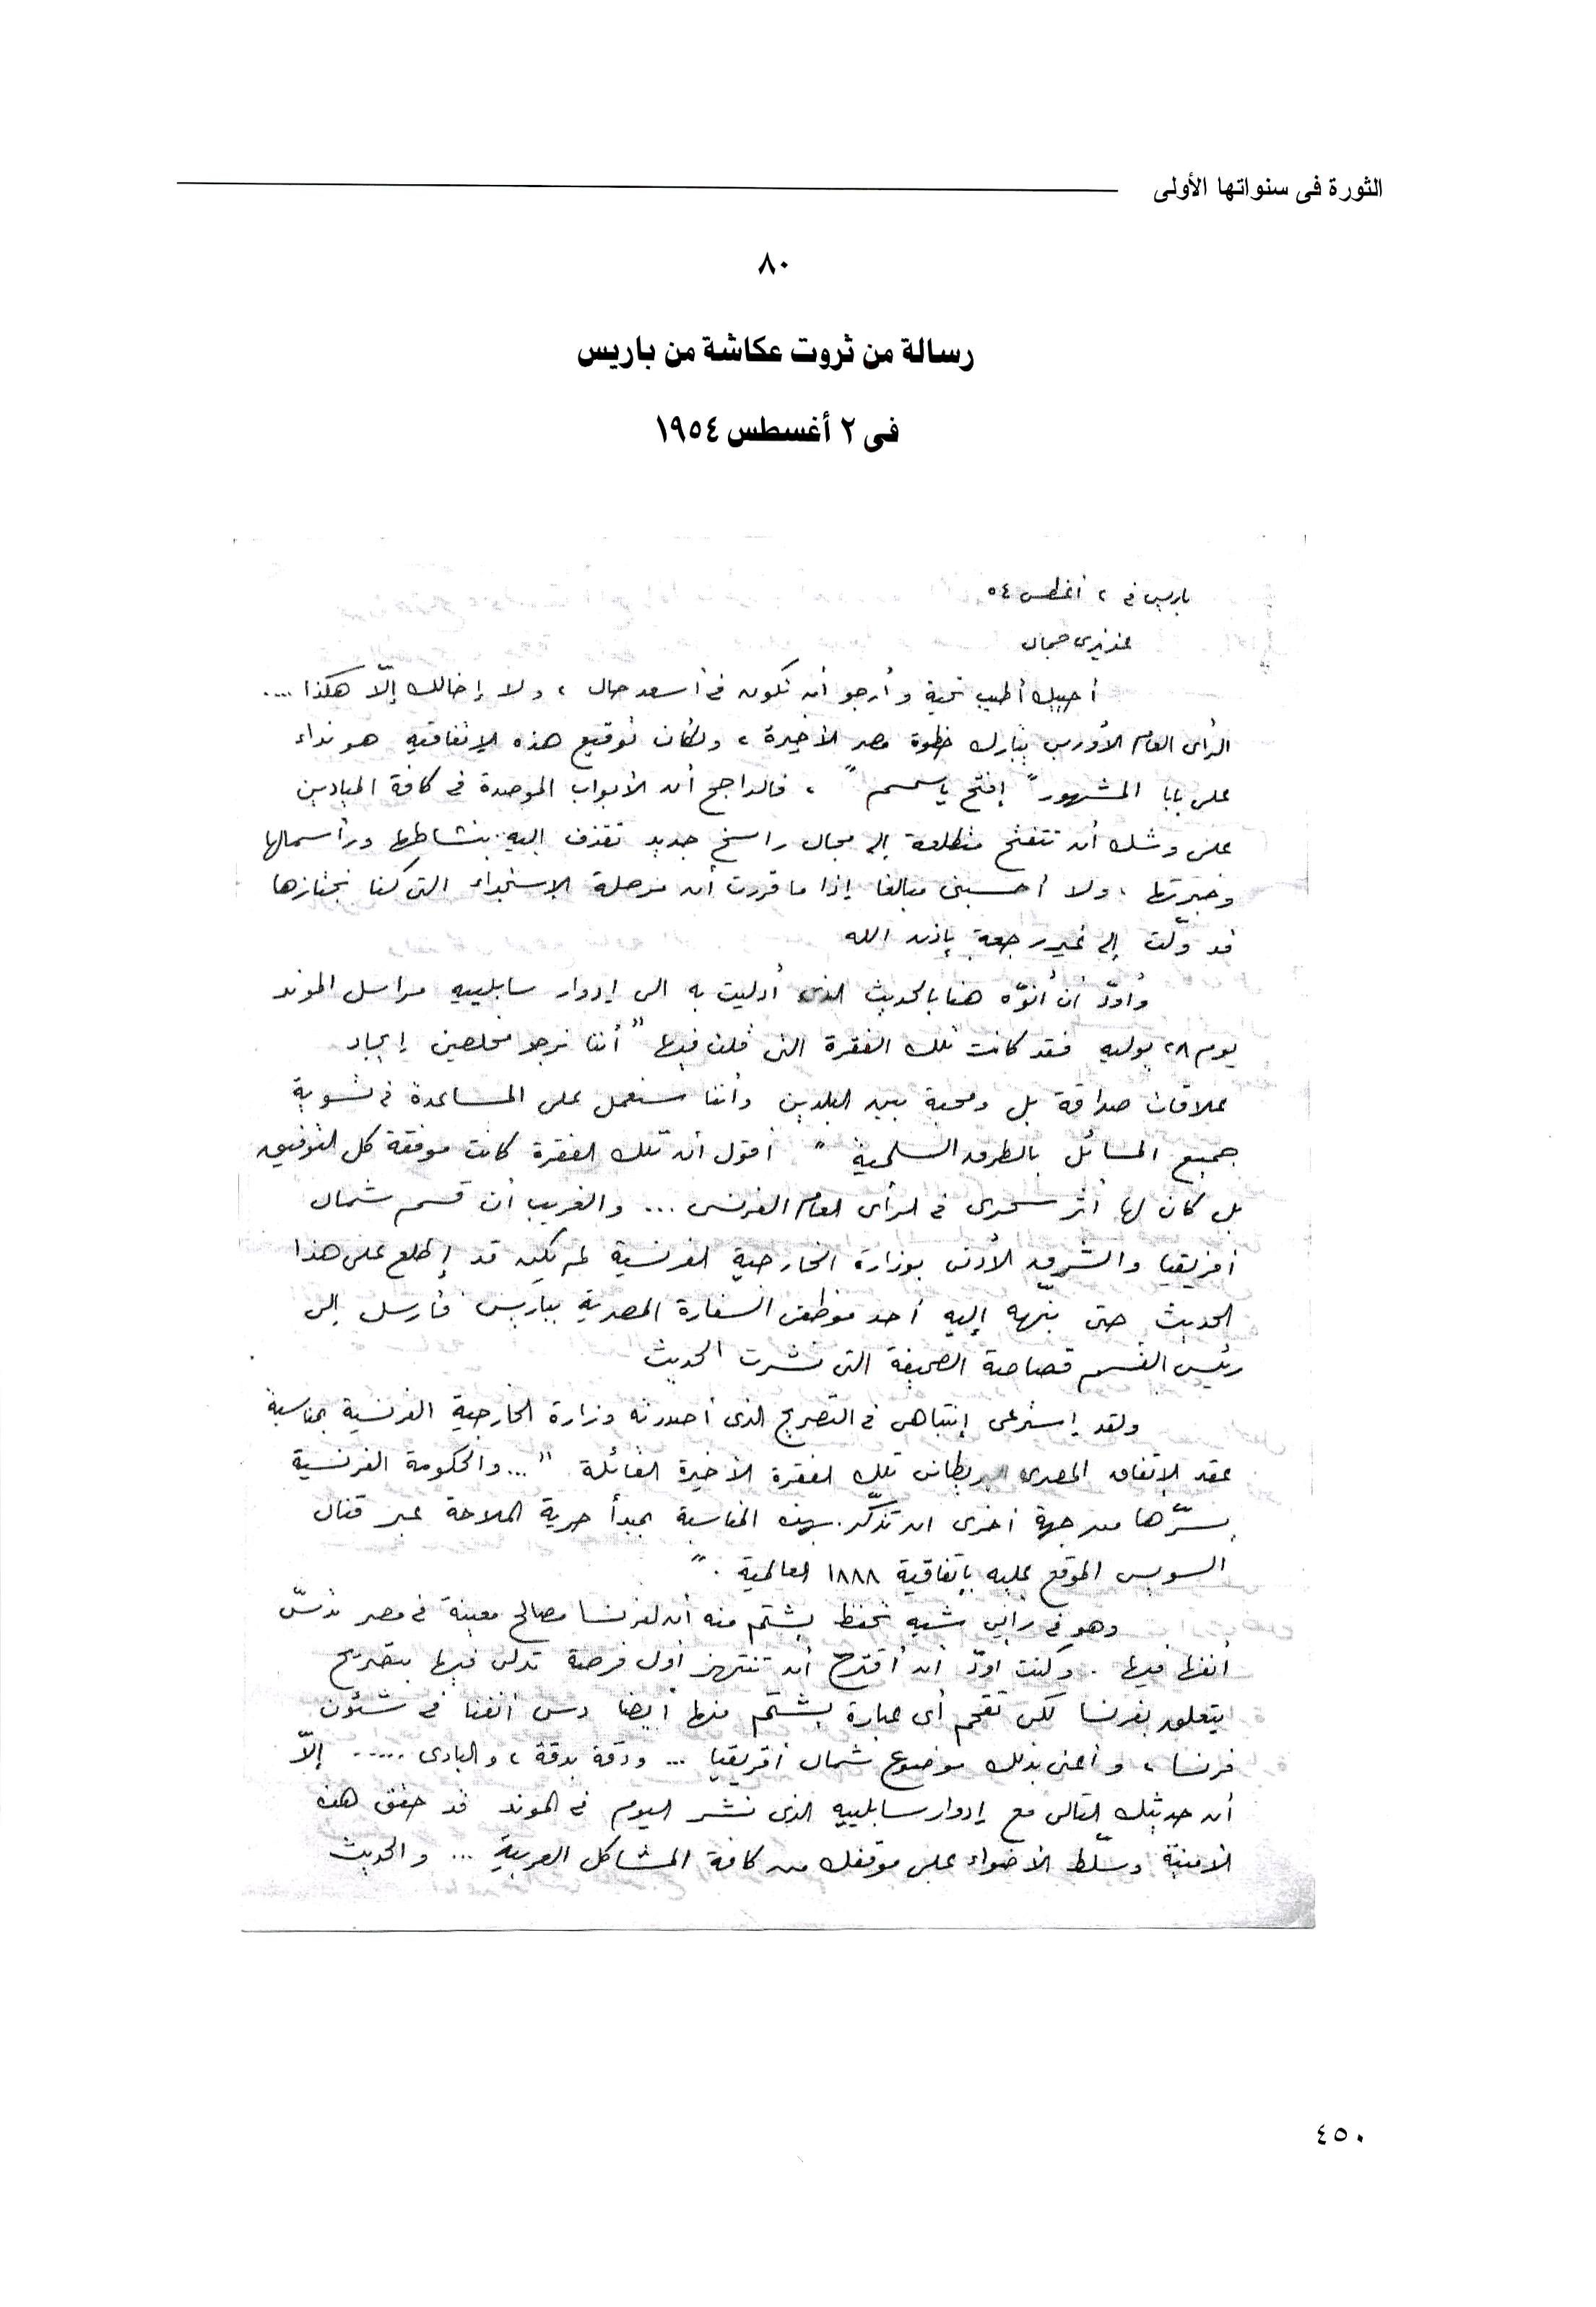 الثورة فى سنواتها الأولى
٨٠
رسالة من ثروت عكاشة من باريس
فى ٢ أغسطس ١٩٥٤
باريس فى ٢ أغسطس ٥٤
عزيزى جمال
أحييك أطيب تحية وأرجو أن تكون فى أسعد حال ، ولا إخالك إلّا هكذا ....
الرأى العام الأوربى يبارك خطوة مصر الأخيرة ، ولكأن توقيع هذه الإتفاقية هو نداء
على بابا المشهور " إفتح يا سمسم " ، فالراجح أن الأبواب الموصدة فى كافة الميادين
على وشك أن تتفتح منطلقة إلى مجال راسخ جديد تقذف إليه بنشاطها ورأسمالها
وخبرتها ، ولا أحسبنى مبالغا إذا ما قررت أن مرحلة الإستجداء التى كنا نجتازها
قد ولّت إلى غير رجعة بإذن الله
وأودّ أن أنوّه هنا بالحديث الذى أدليت به الى إدوار سابلييه مراسل الموند
يوم ٢٨ يوليه فقد كانت تلك الفقرة التى قلت فيها " أننا نرجو مخلصين إيجاد
علاقات صداقة بل ومحبة بين البلدين وأننا سنعمل على المساعدة فى تسوية
جميع المسائل بالطرق السلمية " أقول أن تلك الفقرة كانت موفقة كل التوفيق
بل كان لها أثر سحرى فى الرأى العام الفرنسى ... والغريب أن قسم شمال
أفريقيا والشرق الأدنى بوزارة الخارجية الفرنسية لم يكن قد إطلع على هذا
الحديث حتى نبّهه إليه أحد موظفى السفارة المصرية بباريس فأرسل إلى
رئيس القسم قصاصة الصحيفة التى نشرت الحديث
ولقد إسترعى إنتباهى فى التصريح الذى أصدرته وزارة الخارجية الفرنسية بمناسبة
عقد الإتفاق المصرى البريطانى تلك الفقرة الأخيرة القائلة " ... والحكومة الفرنسية
يسرّها من جهة أخرى ان تذكّر بهذه المناسبة بمبدأ حرية الملاحة عبر قنال
السويس الموقع عليه بإتفاقية ١٨٨٨ العالمية . "
وهو فى رأيى شبه تحفظ يشتم منه أن لفرنسا مصالح معينة فى مصر تدسّ
أنفها فيها . وكنت اودّ أن أقترح أن تنتهز أول فرصة تدلى فيها بتصريح
يتعلق بفرنسا لكى تقحم أى عبارة يشتم منها أيضا دس أنفنا فى شئون
فرنسا ، وأعنى بذلك موضوع شمال أفريقيا ... ودقة بدقة ، والبادى ..... إلّا
أن حديثك التالى مع إدوار سابلييه الذى نشر اليوم فى الموند قد حقق هذه
الأمنية وسلّط الأضواء على موقفك من كافة المشاكل العربية ... والحديث
٤٥٠